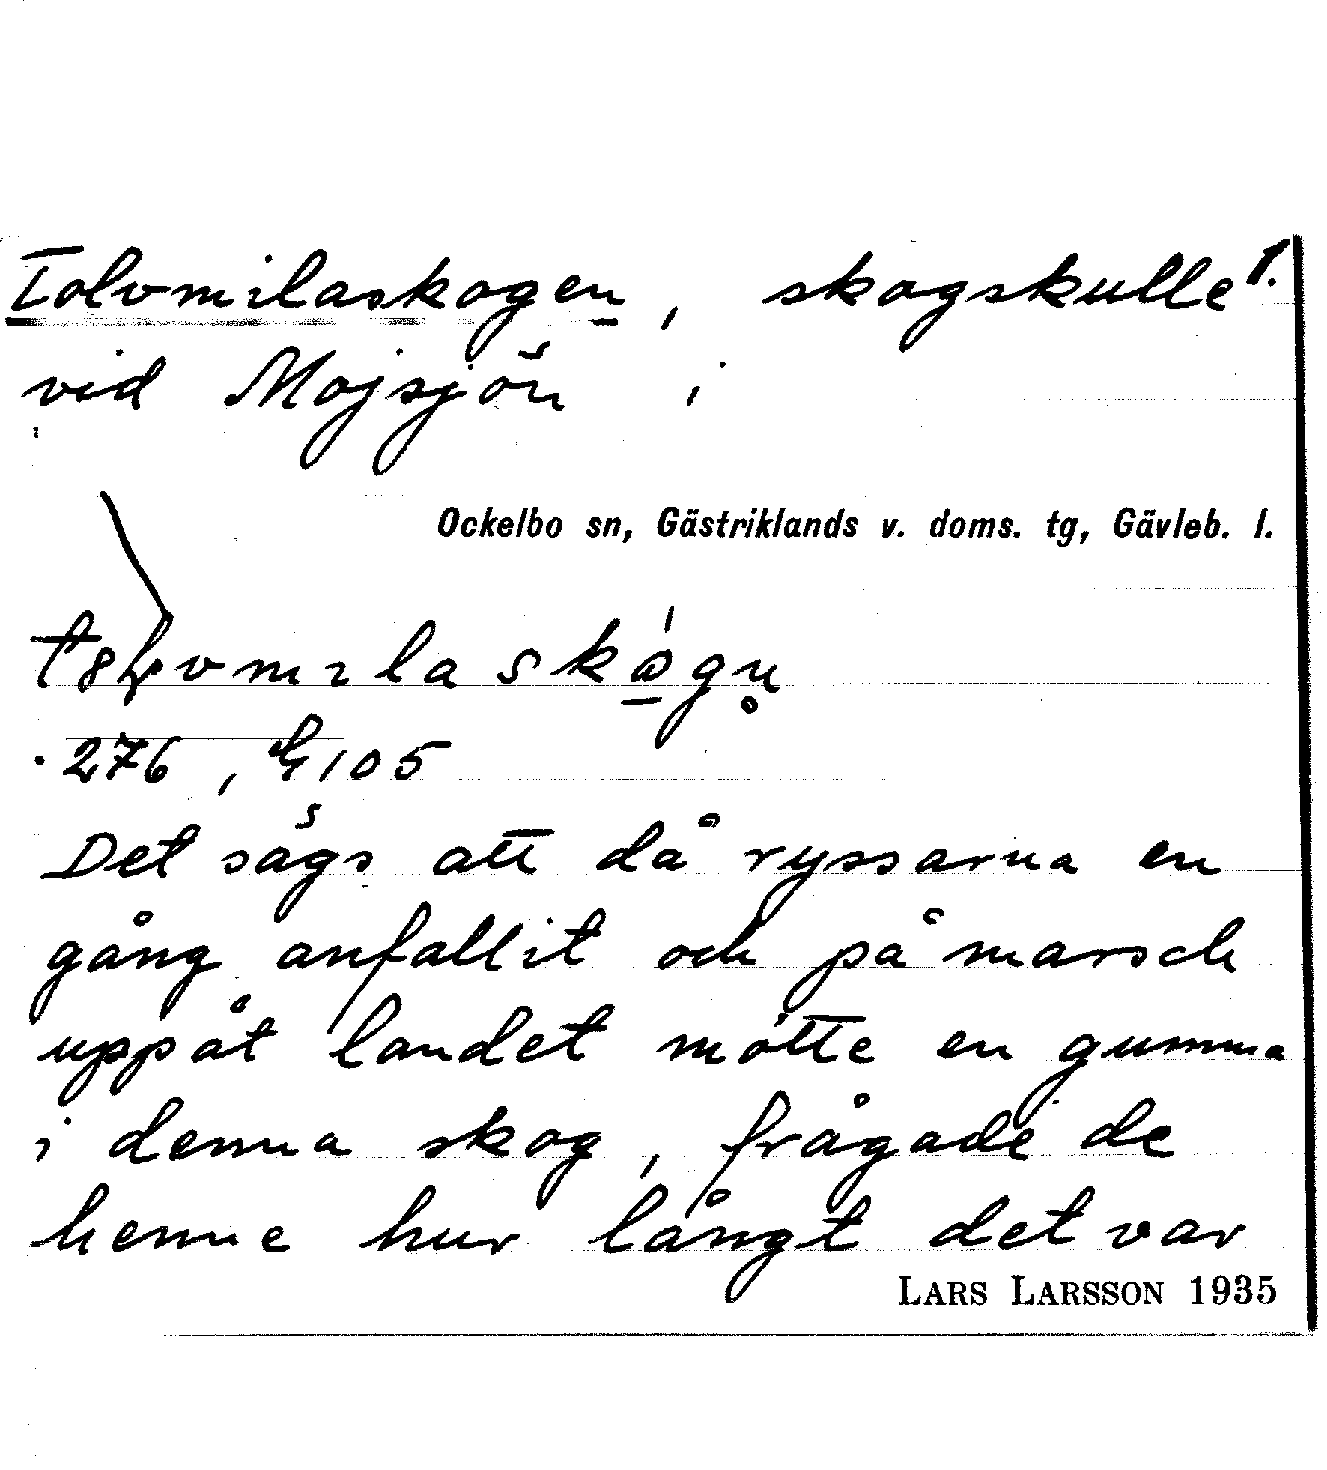 Tolvmilaskogen, skogskulle 1.
vid Mojsjön,
Ockelbo sn, Gästriklands v. doms. tg, Gävleb. l.
276, G105
Det sägs att då ryssarna en
gång anfallit och på marsch
uppåt landet mötte en gumma
i denna skog, frågade de
henne hur långt det var
LARS LARSSON 1935